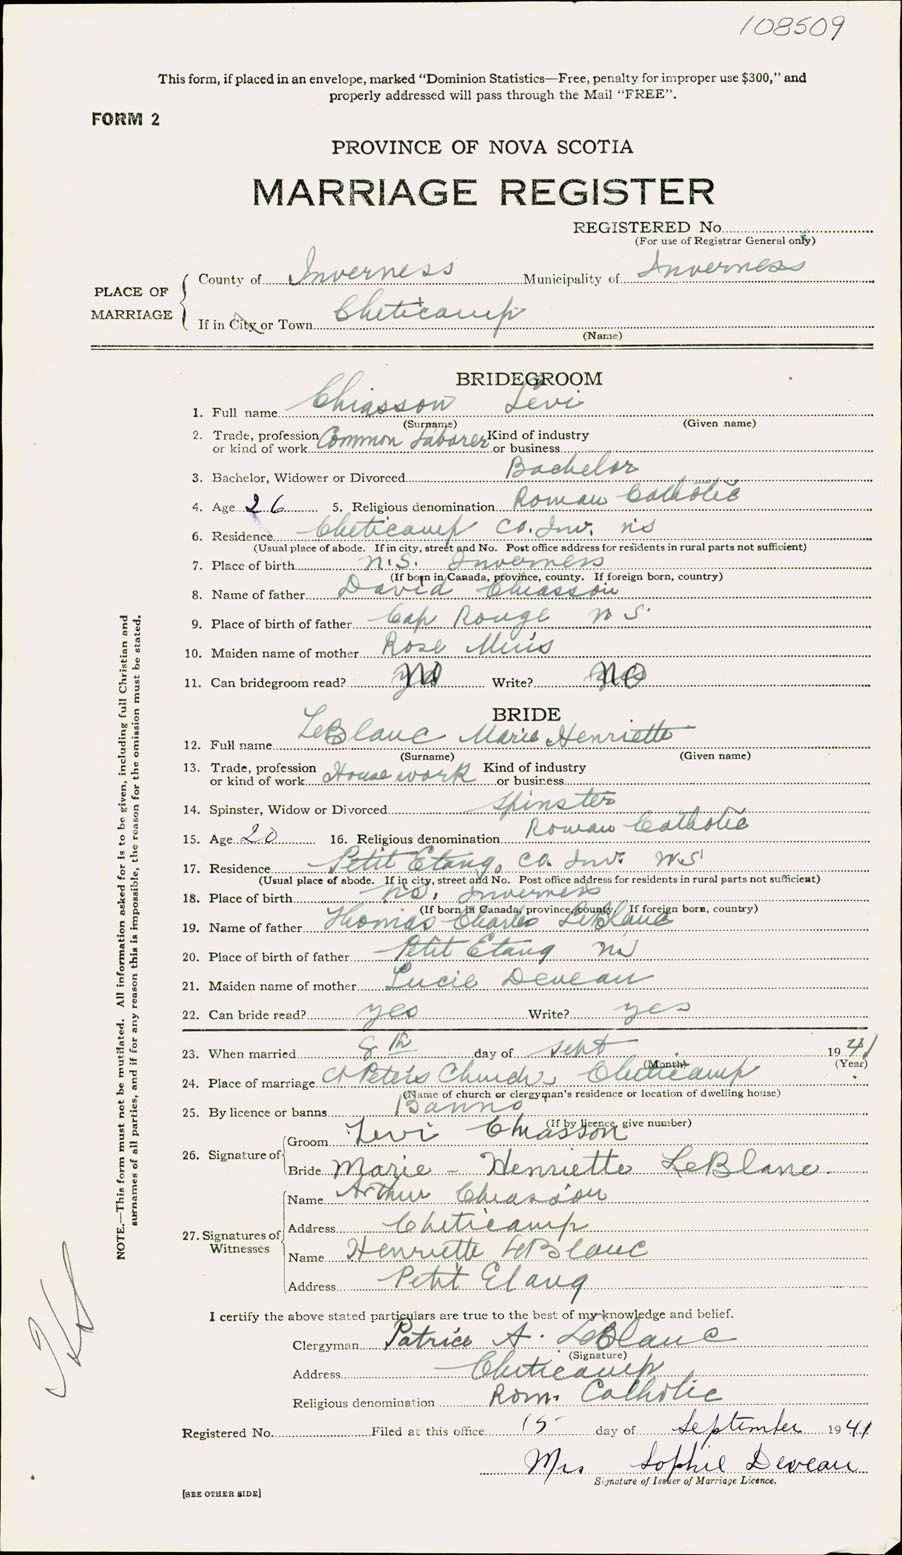 108509
This form, if placed in an envelope, marked “Dominion Statistics—Free, penalty for improper use $300,” and
properly addressed will pass through the Mail “FREE”.
FORM 2
PROVINCE OF NOVA SCOTIA
MARRIAGE REGISTER
REGISTERED No.
(For use of Registrar General only)
PLACE OF MARRIAGE
County of Inverness Municipality of Inverness
If in City or Town Cheticamp
(Name)
BRIDEGROOM
1. Full name Chiasson Levi
(Surname) (Given name)
2. Trade, profession or kind of work Common Laborer Kind of industry or business
3. Bachelor, Widower or Divorced Bachelor
4. Age 26 5. Religious denomination Roman Catholic
6. Residence Cheticamp Co. Inv. N S
(Usual place of abode. If in city, street and No. Post office address for residents in rural parts not sufficient)
7. Place of birth N.S. Inverness
(If born in Canada, province, county. If foreign born, country)
8. Name of father David Chiasson
9. Place of birth of father Cap Rouge N S.
10. Maiden name of mother Rose Muis
11. Can bridegroom read? No Write? No
BRIDE
12. Full name LeBlanc Marie Henriette
(Surname) (Given name)
13. Trade, profession or kind of work House work Kind of industry or business
14. Spinster, Widow or Divorced Spinster
15. Age 20 16. Religious denomination Roman Catholic
17. Residence Petit Etang, Co. Inv. N.S
(Usual place of abode. If in city, street and No. Post office address for residents in rural parts not sufficient)
18. Place of birth N.S. Inverness
(If born in Canada, province, county. If foreign born, country)
19. Name of father Thomas Charles LeBlanc
20. Place of birth of father Petit Etang NS
21. Maiden name of mother Lucie Deveau
22. Can bride read? yes Write? yes
23. When married 8th day of Sept 1941
(Month) (Year)
24. Place of marriage St Peter's Church, Cheticamp
(Name of church or clergyman's residence or location of dwelling house)
25. By licence or banns Banns
(If by licence, give number)
26. Signature of
Groom Levi Chiasson
Bride Marie - Henriette LeBlanc.
27. Signatures of Witnesses
Name Arthur Chiasson
Address Cheticamp
Name Henriette LeBlanc
Address Petit Etang
I certify the above stated particulars are true to the best of my knowledge and belief.
Clergyman Patrice A. LeBlanc
(Signature)
Address Cheticamp
Religious denomination Rom. Catholic
Registered No. Filed at this office 15 day of September 1941
Mrs Sophie Deveau
Signature of Issuer of Marriage Licence.
[SEE OTHER SIDE]
NOTE.—This form must not be mutilated. All information asked for is to be given, including full Christian and
surnames of all parties, and if for any reason this is impossible, the reason for the omission must be stated.